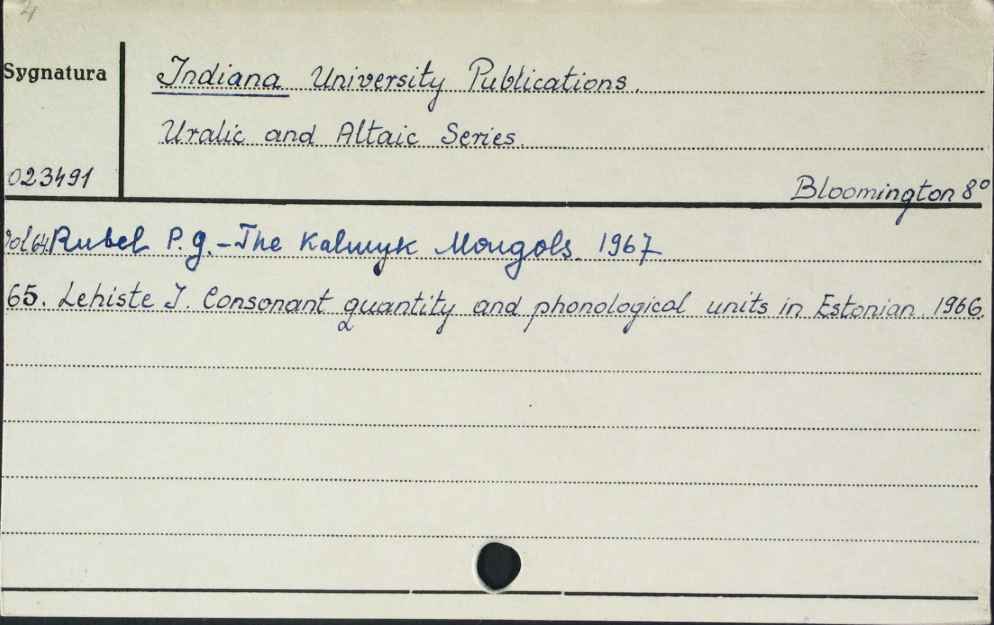 4
Sygnatura
Indiana University Publications.
Uralic and Altaic Series.
023491
Bloomington 8°
Vol 64. Rubel P. G. - The Kalmyk Mongols. 1967
65. Lehiste I. Consonant quantity and phonological units in Estonian. 1966.